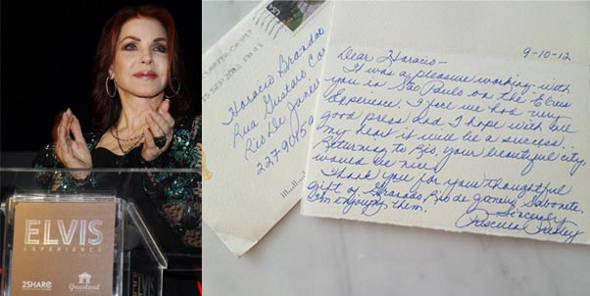 ELVIS
EXPERIENCE
2SHARE
Graceland
Horacio Brandão
Rua Gustavo
Rio De Janeiro
9-10-12
Dear Horacio-
It was a pleasure working with
you in São Paulo on the Elvis
Experience. I feel we had very
good press and I hope with all
my heart it will be a success.
Returning to Rio, your beautiful city,
would be nice.
Thank you for your thoughtful
gift of Granado, Rio de Janeiro Sabonete.
I'm enjoying them.
Sincerely
Priscilla Presley